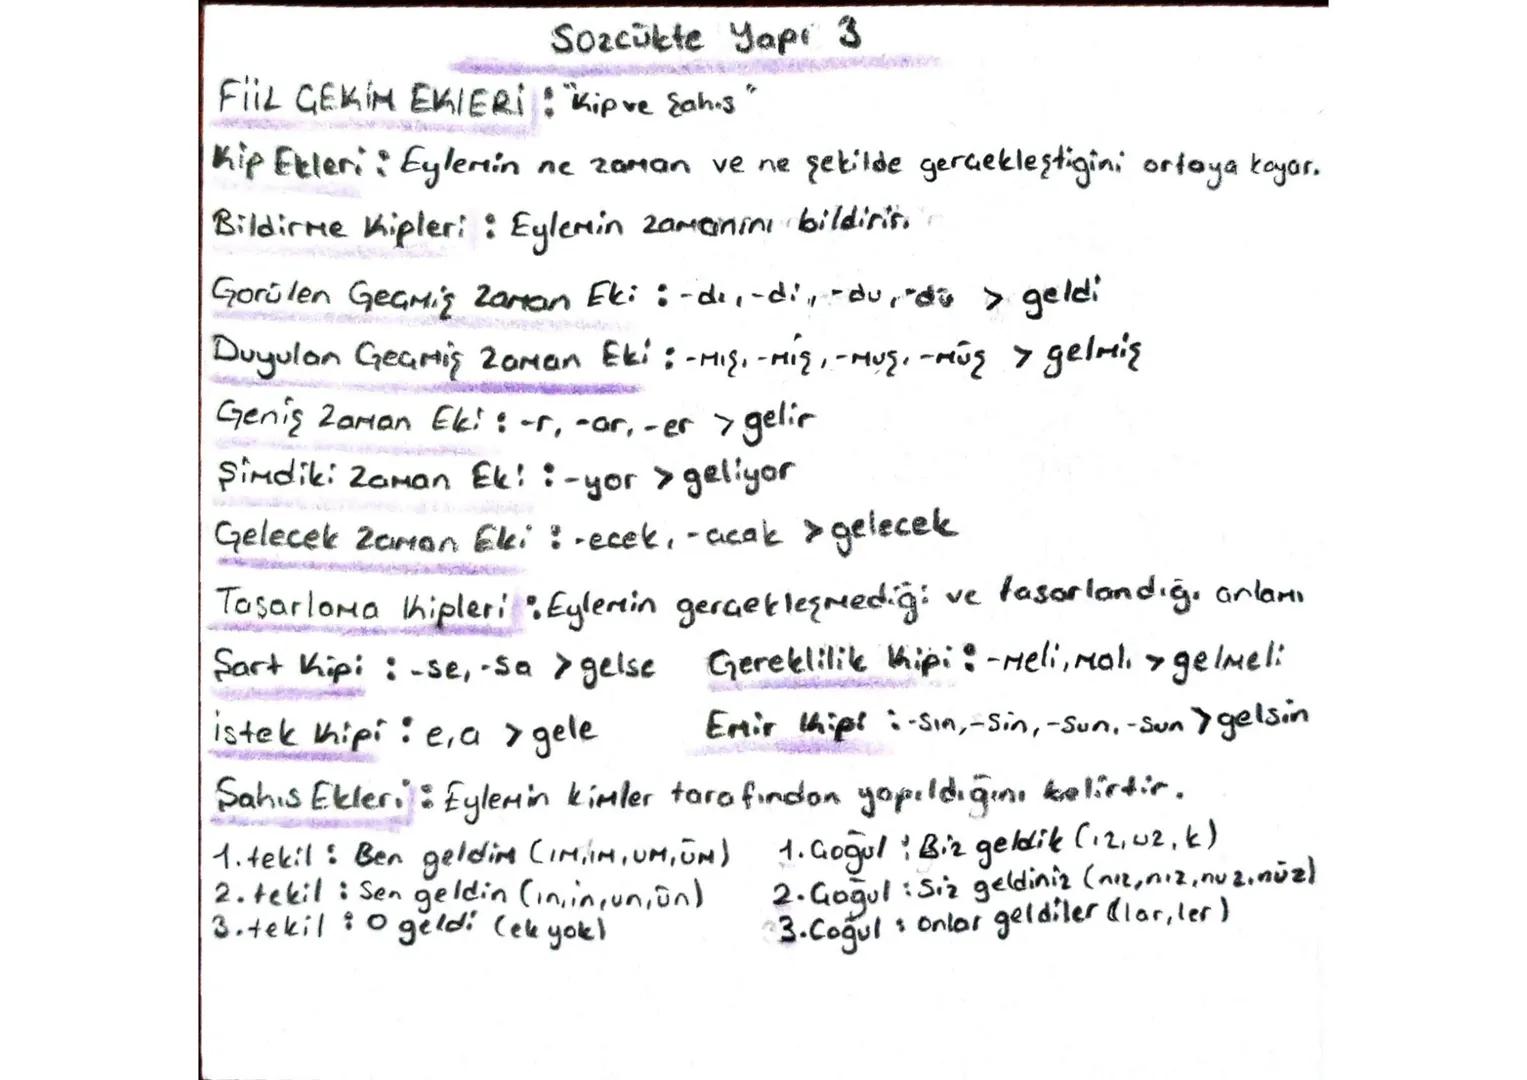 Sözcükte Yapı 3
FİİL ÇEKİM EKLERİ : "Kip ve Şahıs"
Kip Ekleri : Eylemin ne zaman ve ne şekilde gerçekleştiğini ortaya koyar.
Bildirme Kipleri : Eylemin zamanını bildirir.
Görülen Geçmiş Zaman Eki : -dı, -di, -du, -dü > geldi
Duyulan Geçmiş Zaman Eki : -mış, -miş, -muş, -müş > gelmiş
Geniş Zaman Eki : -r, -ar, -er > gelir
Şimdiki Zaman Eki : -yor > geliyor
Gelecek Zaman Eki : -ecek, -acak > gelecek
Tasarlama Kipleri : Eylemin gerçekleşmediği ve tasarlandığı anlamı
Şart Kipi : -se, -sa > gelse Gereklilik Kipi : -meli, malı > gelmeli
İstek Kipi : e, a > gele Emir Kipi : -sın, -sin, -sun, -sun > gelsin
Şahıs Ekleri : Eylemin kimler tarafından yapıldığını belirtir.
1. tekil : Ben geldim (ım, im, um, üm) 1. Çoğul : Biz geldik (ız, uz, k)
2. tekil : Sen geldin (ın, in, un, ün) 2. Çoğul : Siz geldiniz (nız, niz, nuz, nüz)
3. tekil : O geldi (ek yok) 3. Çoğul : Onlar geldiler (lar, ler)